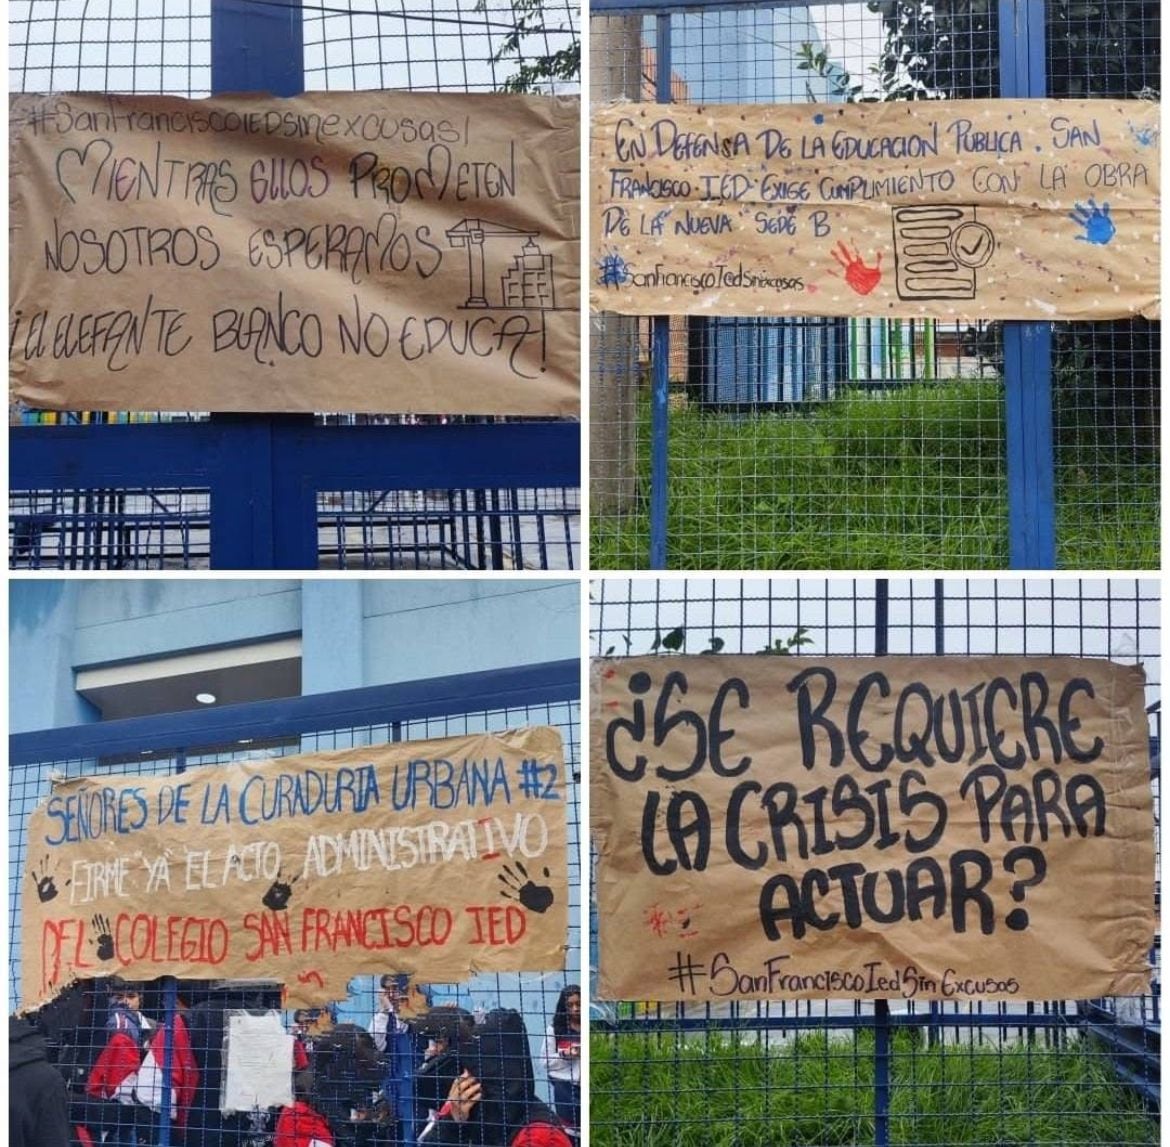 #SanFranciscoIEDsinexcusas!
MIENTRAS ELLOS PROMETEN
NOSOTROS ESPERAMOS
¡EL ELEFANTE BLANCO NO EDUCA!
EN DEFENSA DE LA EDUCACION PUBLICA. SAN
FRANCISCO IED EXIGE CUMPLIMIENTO CON LA OBRA
DE LA "NUEVA" SEDE B
#SanFranciscoIedSinexcusas
SEÑORES DE LA CURADURIA URBANA #2
FIRME "YA" EL ACTO ADMINISTRATIVO
DEL COLEGIO SAN FRANCISCO IED
¿SE REQUIERE
LA CRISIS PARA
ACTUAR?
#SanFranciscoIedSinExcusas